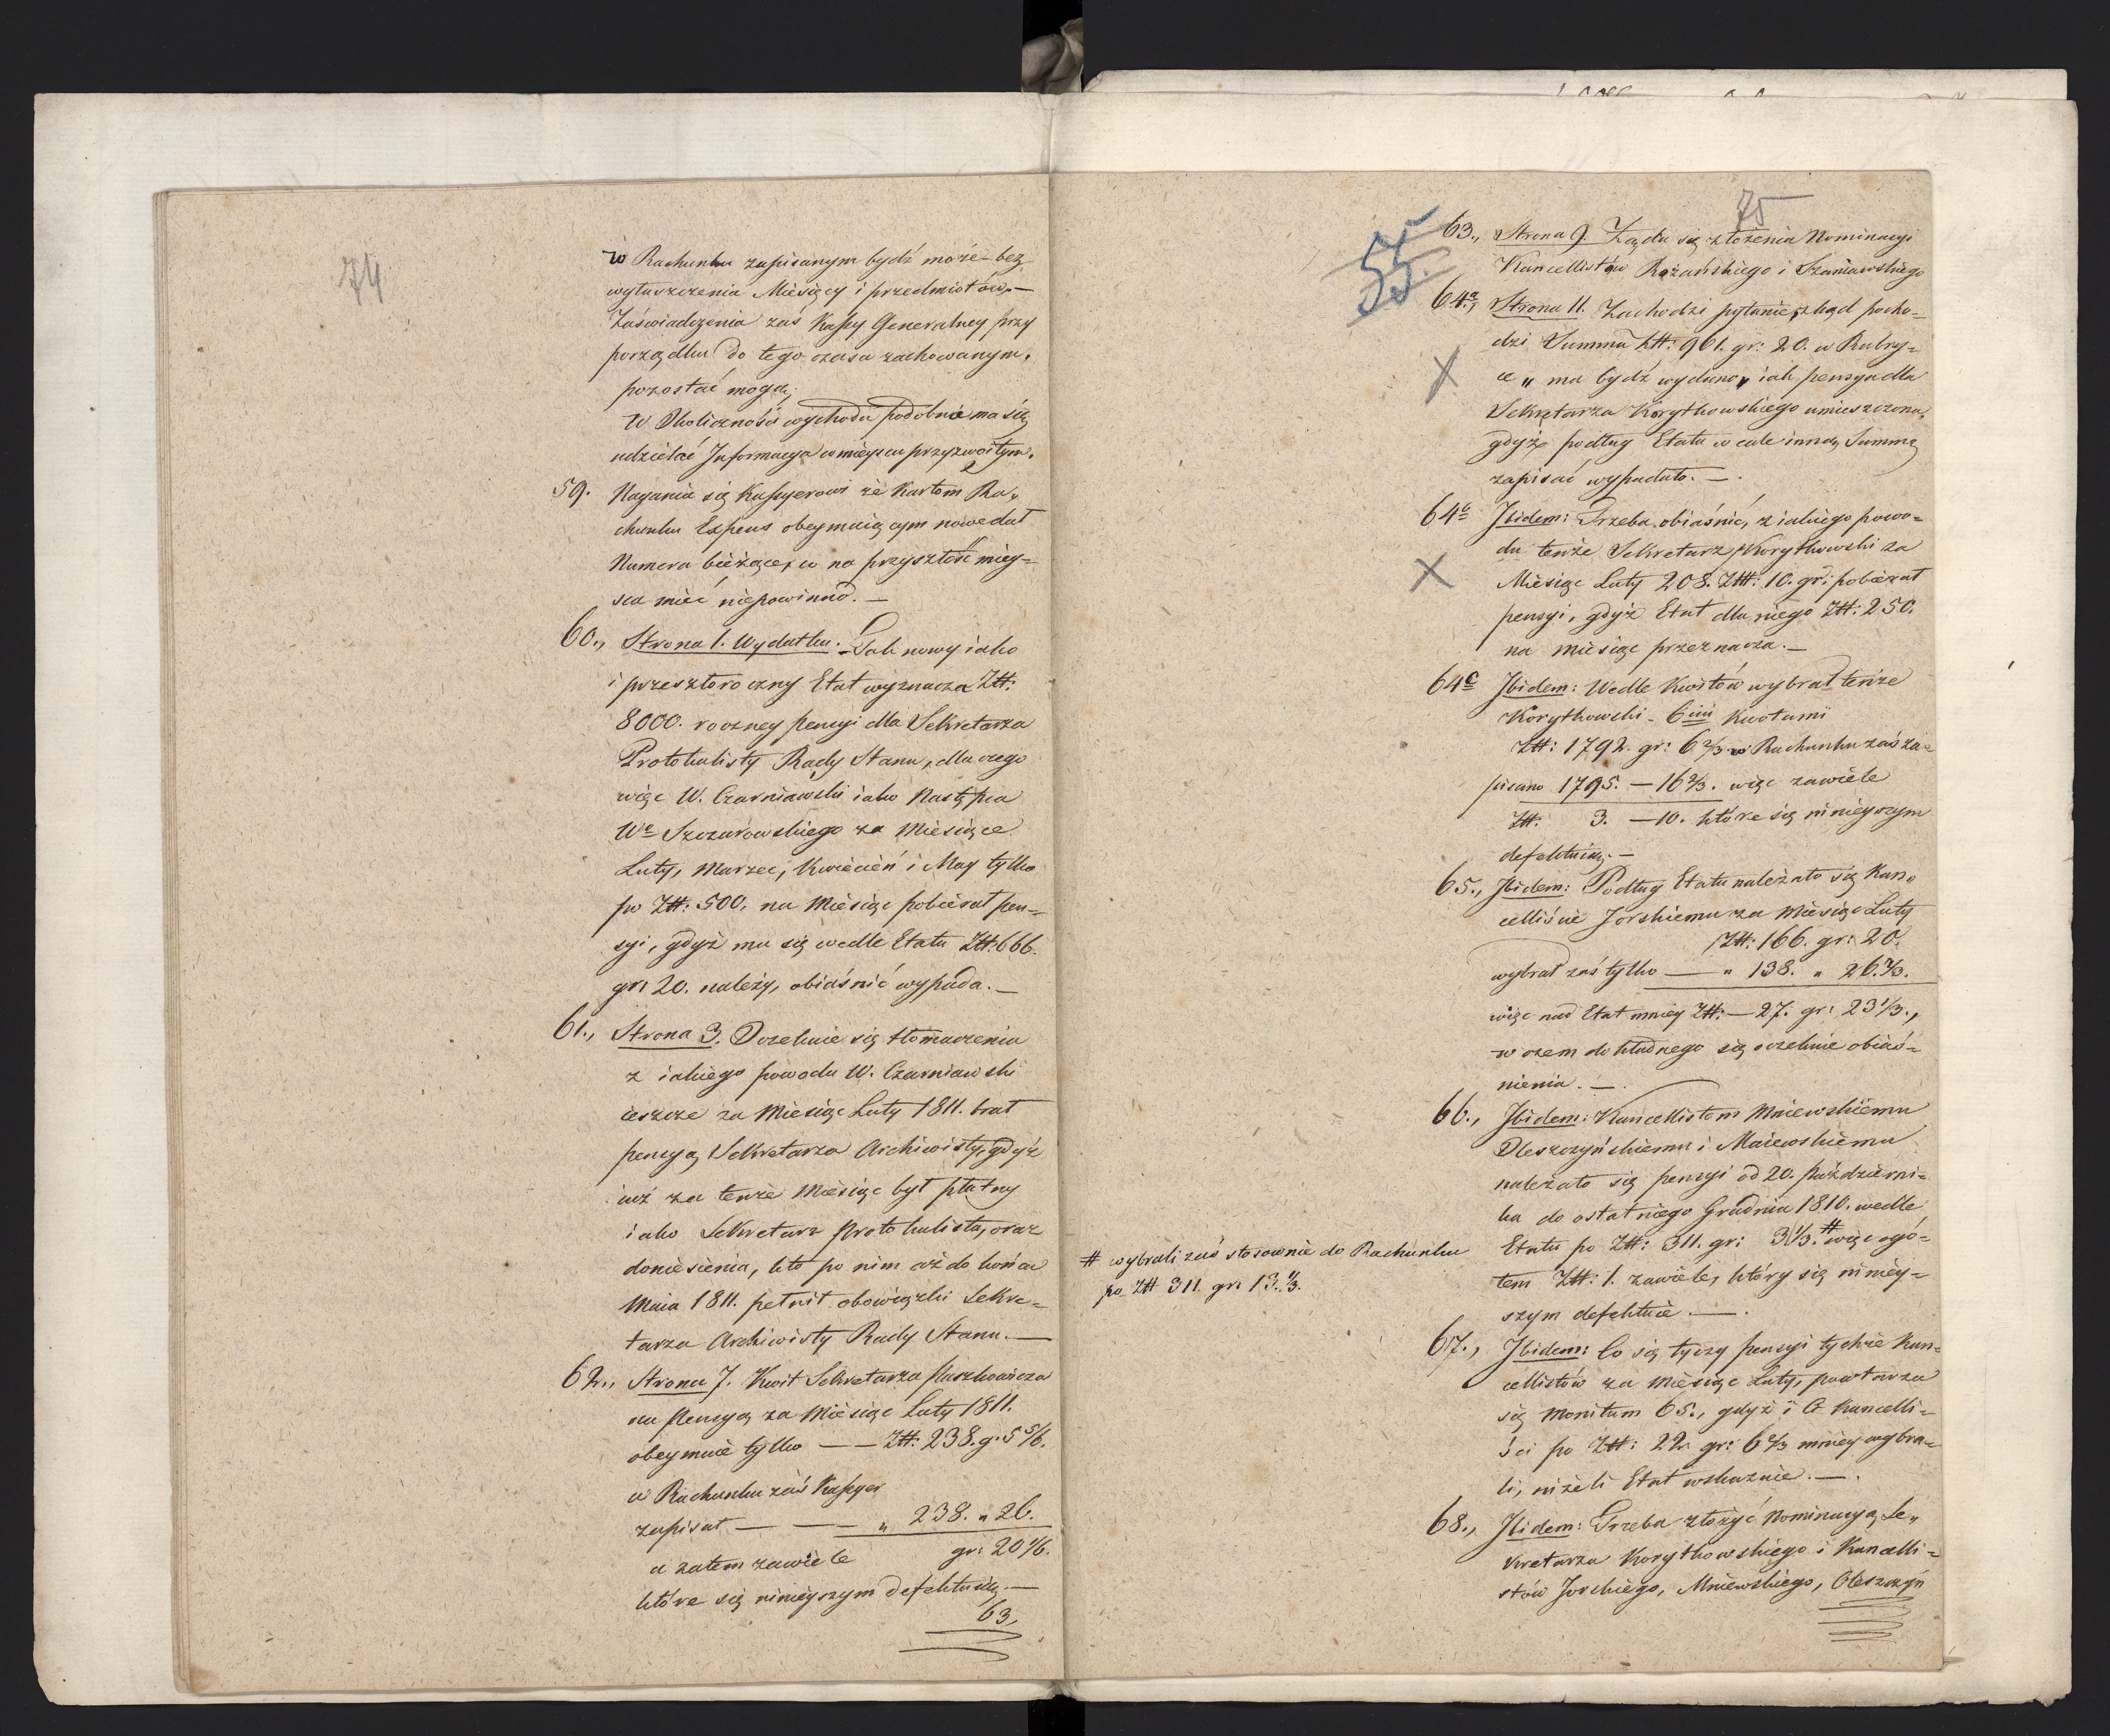 74
w Rachunku zapisanym bydź może bez
wyłuszczenia Miesięcy i przedmiotów.—
Zaświadczenia zaś Kassy Generalney przy
porządku do tego czasu zachowanym,
pozostać mogą;
W Okoliczności wychodu podobnie ma się
udzielać Informacya w mieyscu przyzwoitym.
59. Nagania się Kassyerowi że Kartom Ra„
chunku Expens obeymuiącym nowe dał
Numera bieżące, co na przyszłość miey=
sca mieć niepowinno.—
60., Strona 1. Wydatku. Tak nowy iako
i przeszłoroczny Etat wyznacza Złł:
8000. roczney pensyi dla Sekretarza
Protokulisty Rady Stanu, dla czego
więc W. Czarniawski iako Następca
Wo Szczurowskiego za Miesiące
Luty, Marzec, Kwiecień i May tylko
po Złł: 500. na Miesiąc pobierał pen=
syi, gdyż mu się wedle Etatu Złł: 666.
gr: 20. należy, obiaśnić wypada.—
61., Strona 3. Oczekuie się tłomaczenia
z iakiego powodu W. Czarniawski
ieszcze za Miesiąc Luty 1811. brał
pensyą Sekretarza Archiwisty, gdyż
iuż za tenże Miesiąc był płatny
iako Sekretarz Protokulista, oraz
doniesienia, kto po nim aż do końca
Maia 1811. pełnił obowiązki Sekre=
tarza Archiwisty Rady Stanu.—
62., Strona 7. Kwit Sekretarza Paszkowicza
na Pensyą za Miesiąc Luty 1811.
obeymuie tylko — — Złł: 238. g. 5 5/6.
w Rachunku zaś Kassyer
zapisał — — — „ 238. „ 26.
a zatem zawiele gr: 20 1/6.
które się ninieyszym defektuią.—
63,
75
55.
63., Strona 9. Żąda się złożenia Nominacyi
Kancellistów Różańskiego i Szaniawskiego
64a., Strona 11. Zachodzi pytanie, zkąd pocho=
dzi Summa Złł: 961. gr: 20. w Rubry=
ce „ ma bydź wydano „ iak pensya dla
Sekretarza Korythowskiego umieszczona,
gdyż podług Etatu wcale inną Summę
zapisać wypadało.—.
64b Ibidem: Trzeba obiaśnić, z iakiego powo=
du tenże Sekretarz Korythowski za
Miesiąc Luty 208. Złł: 10. gr: pobierał
pensyi, gdyż Etat dla niego Złł: 250.
na miesiąc przeznacza.—
64c Ibidem: Wedle Kwitów wybrał tenże
Korythowski - 6ciu Kwotami
Złł: 1792. gr: 6 2/3. w Rachunku zaś za=
pisano 1795. — 16 2/3. więc zawiele
Złł: 3. — 10. które się ninieyszym
defektuią.—
65., Ibidem: Podług Etatu należało się Kan„
celliście Jorskiemu za Miesiąc Luty
Złł: 166. gr: 20.
wybrał zaś tylko — „ 138. „ 26 2/3.
więc nad Etat mniey Złł: — 27. gr: 23 1/3.,
w czem dokładnego się oczekuie obiaś=
nienia.—.
66., Ibidem: Kancellistom Mniewskiemu
Oleszczyńskiemu i Maiewskiemu
należało się pensyi od 20. Październi=
ka do ostatniego Grudnia 1810. wedle
Etatu po Złł: 311. gr: 3 1/3. # więc ogó=
łem Złł: 1. zawiele, który się niniey=
szym defektuie.—.
# wybrali zaś stosownie do Rachunku
po Złł 311. gr: 13. 1/3.
67., Ibidem: Co się tyczy pensyi tychże Kan=
cellistów za Miesiąc Luty, powtarza
się Monitum 65., gdyż i Ci Kancelli=
ści po Złł: 22 gr: 6 2/3 mniey wybra=
li, niżeli Etat wskazuie.—.
68., Ibidem: Trzeba złożyć Nominacyą Se„
kretarza Korythowskiego i Kancelli=
stów Jorskiego, Mniewskiego, Oleszczyń